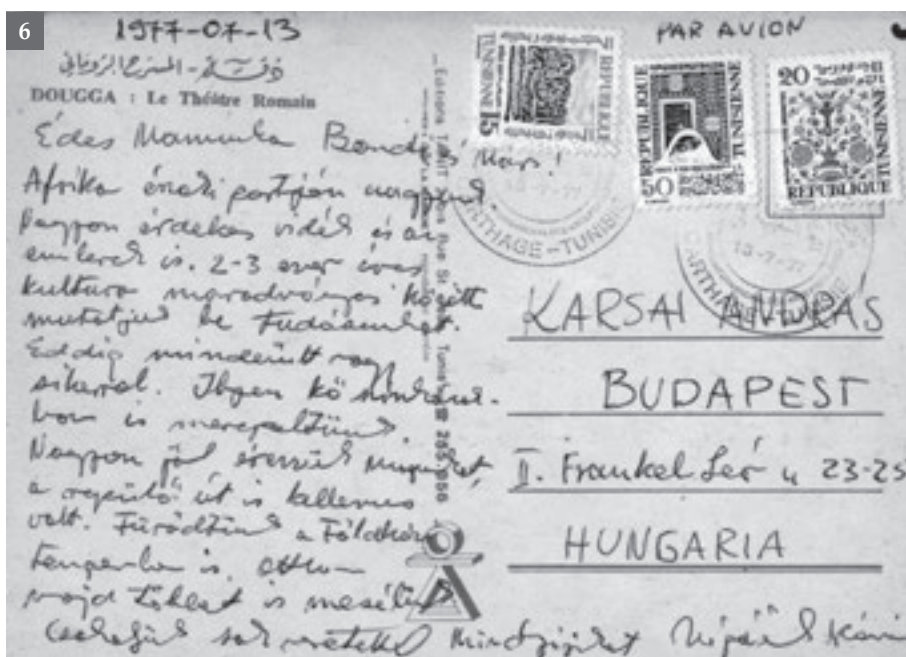 6
1977-07-13
PAR AVION
DOUGGA : Le Théâtre Romain
Édes Mamuka Bandi és
Afrika északi partján vagyunk.
Nagyon érdekes vidék és az
emberek is. 2-3 ezer éves
kultura maradványai között
mutatjuk be tudásunkat.
Eddig mindenütt nagy
sikerrel. Ilyen kő
ban is szerepeltünk.
Nagyon jól érezzük magunkat,
a repülő út is kellemes
volt. Fürödtünk a Földközi
tengerben is, otthon
majd többet is mesélünk
Csókoljuk sok szeretettel Mindnyájukat
REPUBLIQUE TUNISIENNE 15
REPUBLIQUE TUNISIENNE
50
20
REPUBLIQUE TUNISIENNE
CARTHAGE-TUNISIE
13-7-77
CARTHAGE
13-7-77
KARSAI ANDRAS
BUDAPEST
II. Frankel Leó u 23-25
HUNGARIA